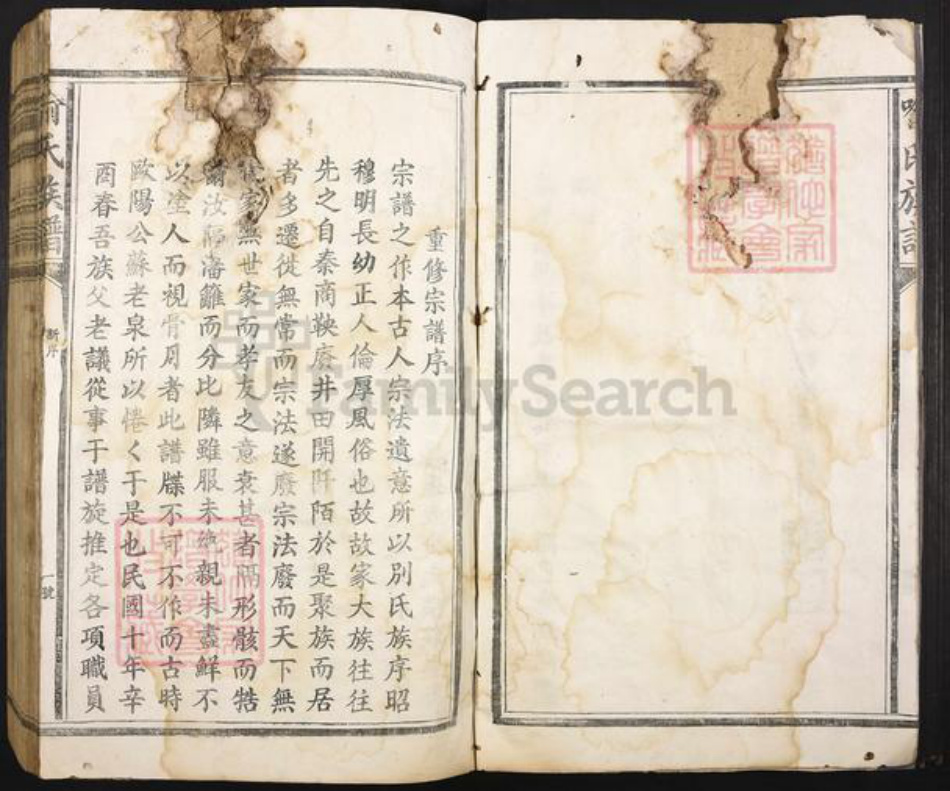 喻氏族譜
重修宗譜序
宗譜之作本古人宗法遺意所以別氏族序昭
穆明長幼正人倫厚風俗也故故家大族往往
先之自秦商鞅廢井田開阡陌於是聚族而居
者多遷徙無常而宗法遂廢宗法廢而天下無
家無世家而孝友之意衰甚者隔形骸而牿
爾汝隔藩籬而分比隣雖服未絕親未盡鮮不
以塗人而視骨肉者此譜牒不可不作而古時
歐陽公蘇老泉所以惓く于是也民國十年辛
酉春吾族父老議從事于譜旋推定各項職員
氏族譜
新序
一號
FamilySearch